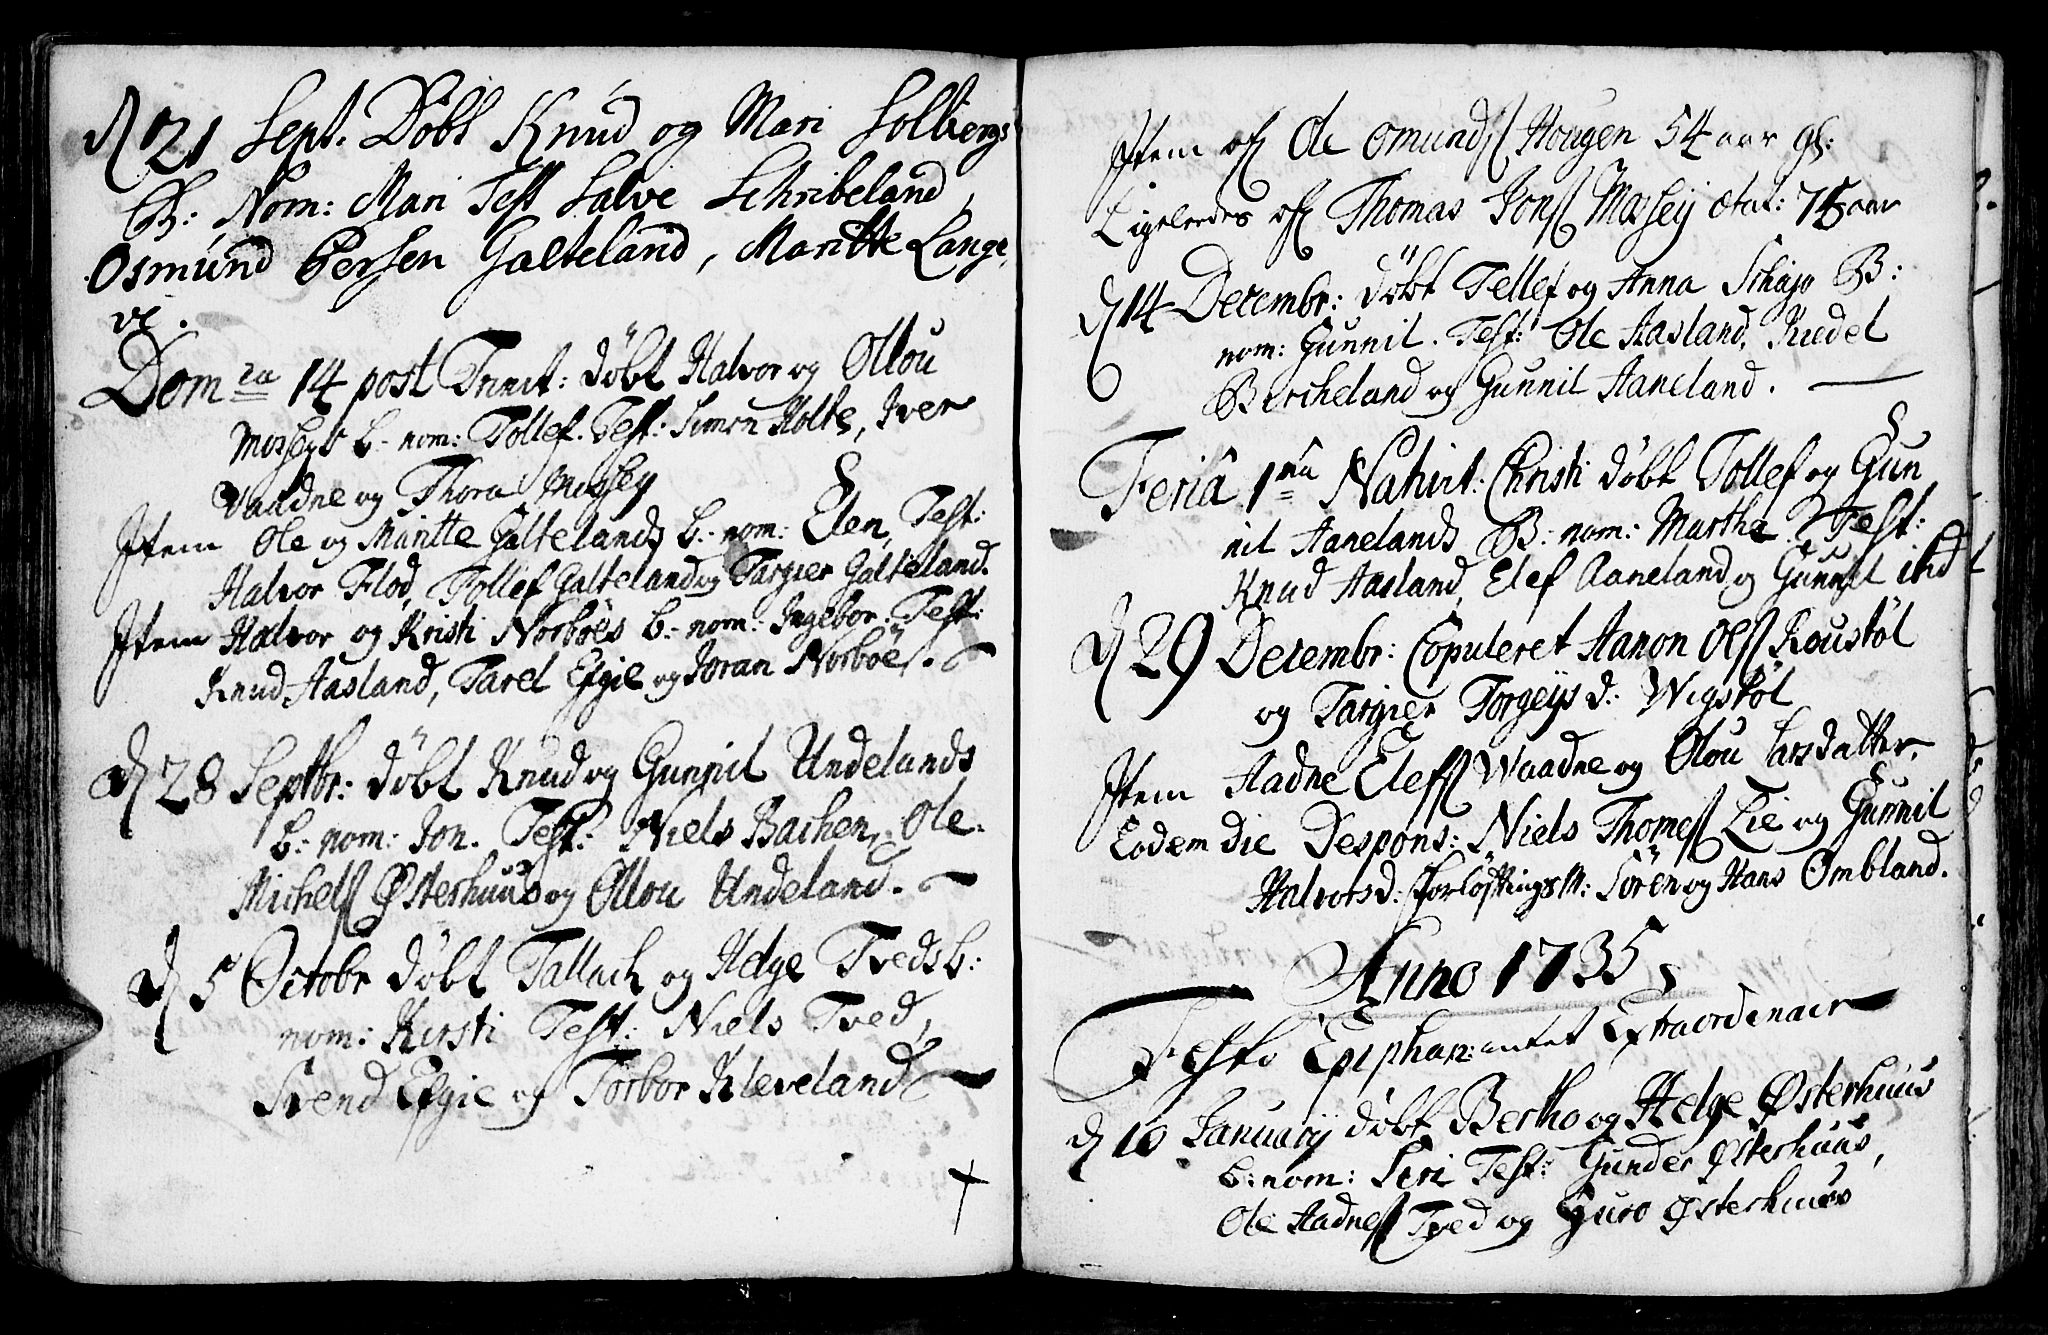 d 21 Sept. Döbt Knud og Mari Solbergs
B: Nom: Mari Test Salve Schribeland,
Osmund Persen Galteland, Maritte Lange
vei.
Dom na 14 post Trinit: döbt Halvor og Ollou
Mosseys b. nom: Tollef. Test: Simon Holte, Iver
Vaadne og Thora Mossey
Item Ole og Maritte Galtelands b. nom: Elen, Test:
Halvor Flod, Tollef Galteland og Targier Galteland.
Item Halvor og Kristi Norböes b. nom: Ingebor. Test:
Knud Aasland, Tarel Efgie og Joran Norböe.
d 28 Septbr: döbt Knud og Gunnil Undelands
b. nom: Jon. Test: Niels Bachen, Ole
Michels Østerhuus og Ollou Undeland.
d 5 Octobr döbt Tallach og Helge Tveds b:
nom: Kirsti Test: Niels Tved,
Svend Efgie og Torbor Kleveland
Item Ole Omunds Hougen 54 aar gl:
Ligeledes Thomas Jons Mossey ætat: 75 aar
d 14 Decembr: döbt Tellef og Anna Schajo B:
nom: Gunnil. Test: Ole Aasland, Kiedel
Bircheland og Gunnil Aaneland.
Feria 1ma Nativit: Christi döbt Tollef og Gun
nil Aanelands B: nom: Martha. Test:
Knud Aasland, Elef Aaneland og Gunnil ibid
d 29 Decembr: Copuleret Aanon Ols Roustöl
og Targier Torgeysd: Wigstöl
Item Aadne Elefs Waadne og Olou Larsdatter.
Eodem die Despons: Niels Thomes Lie og Gunnil
Halvorsd: Forlöftningsm: Sören og Hans Ombland.
Anno 1735
Festo Epiphan: intet Extraordinair
d 10 January döbt Bertho og Helge Østerhuus
b: nom: Siri Test: Gunder Østerhuus,
Ole Aadnes Tved og Guro Østerhuus